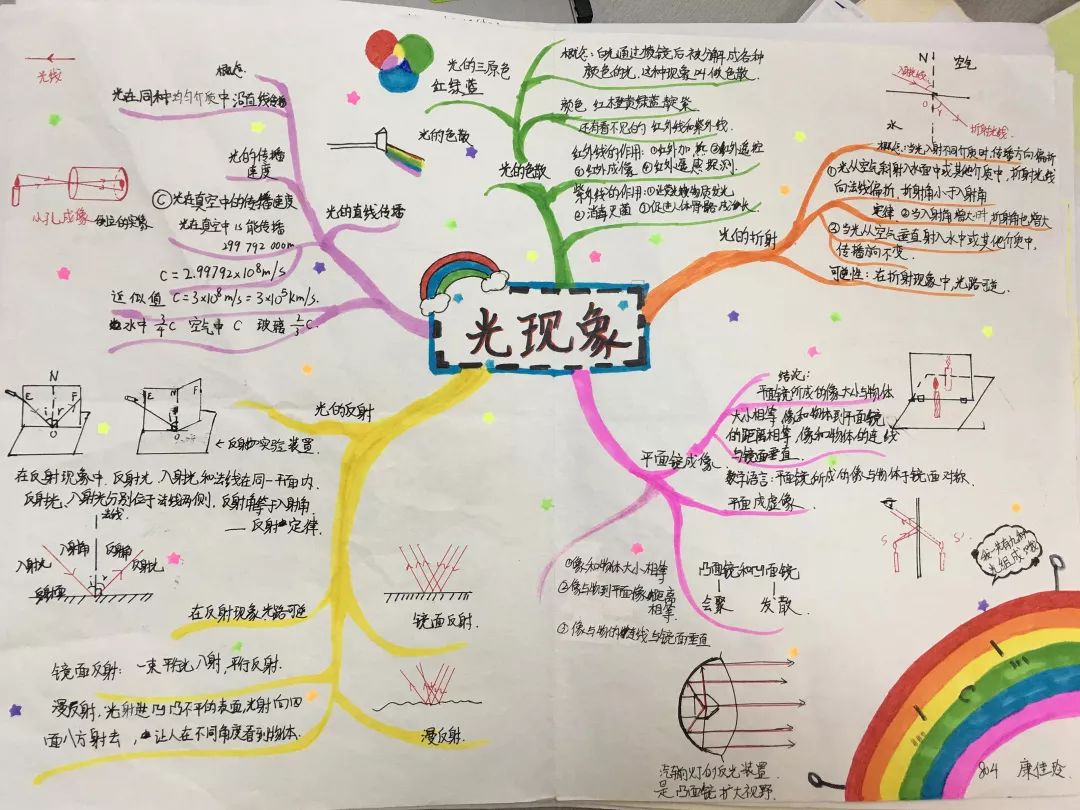 光现象
光线
小孔成像 倒立的实像
概念:
光在同种均匀介质中沿直线传播
光的传播
速度
C 光在真空中的传播速度
光在真空中 1s 能传播
299 792 000m
C = 2.99792×10⁸m/s
近似值 C=3×10⁸m/s = 3×10⁵km/s.
水中 3/4 C 空气中 C 玻璃 2/3 C.
光的直线传播
光的三原色
红绿蓝
光的色散
光的色散
概念: 白光通过棱镜后被分解成各种
颜色的光,这种现象叫做色散.
颜色 红橙黄绿蓝靛紫
还有看不见的 红外线和紫外线.
红外线的作用: ①红外加热 ②红外遥控
③红外成像 ④红外遥感探测.
紫外线的作用:
②消毒灭菌
N 空气
入射光线
O
水
折射光线.
光的折射
概念: 当光入射不同介质时,传播方向偏折
①光从空气斜射入水面中或其他介质中,折射光线
向法线偏折,折射角小于入射角
定律. ②当入射角增大时 折射角也增大
③当光从空气垂直射入水中或其他介质中,
传播方向不变.
可逆性: 在折射现象中,光路可逆.
N
E F
i r
O
N
E F
O
←反射实验装置
光的反射
在反射现象中. 反射光, 入射光和法线在同一平面内.
反射光、入射光分别位于法线两侧, 反射角等于入射角
—— 反射定律
法线.
入射光 入射角 反射角 反射光
反射面
在反射现象光路可逆
镜面反射.
镜面反射: 一束平行光入射, 平行反射.
漫反射, 光射进凹凸不平的表面, 光射向四
面八方射去, 让人在不同角度看到物体.
漫反射.
平面镜成像.
结论:
平面镜所成的像大小与物体
大小相等, 像和物体到平面镜
的距离相等, 像和物体的连线
与镜面垂直.
数学语言: 平面镜所成的像与物体于镜面对称.
平面成虚像.
S S'
①像和物体大小相等
②像与物到平面像距离
相等.
③像与物的连线与镜面垂直
凸面镜和凹面镜
会聚 发散
汽车灯的反光装置
是凸面镜 扩大视野.
804 康佳玲